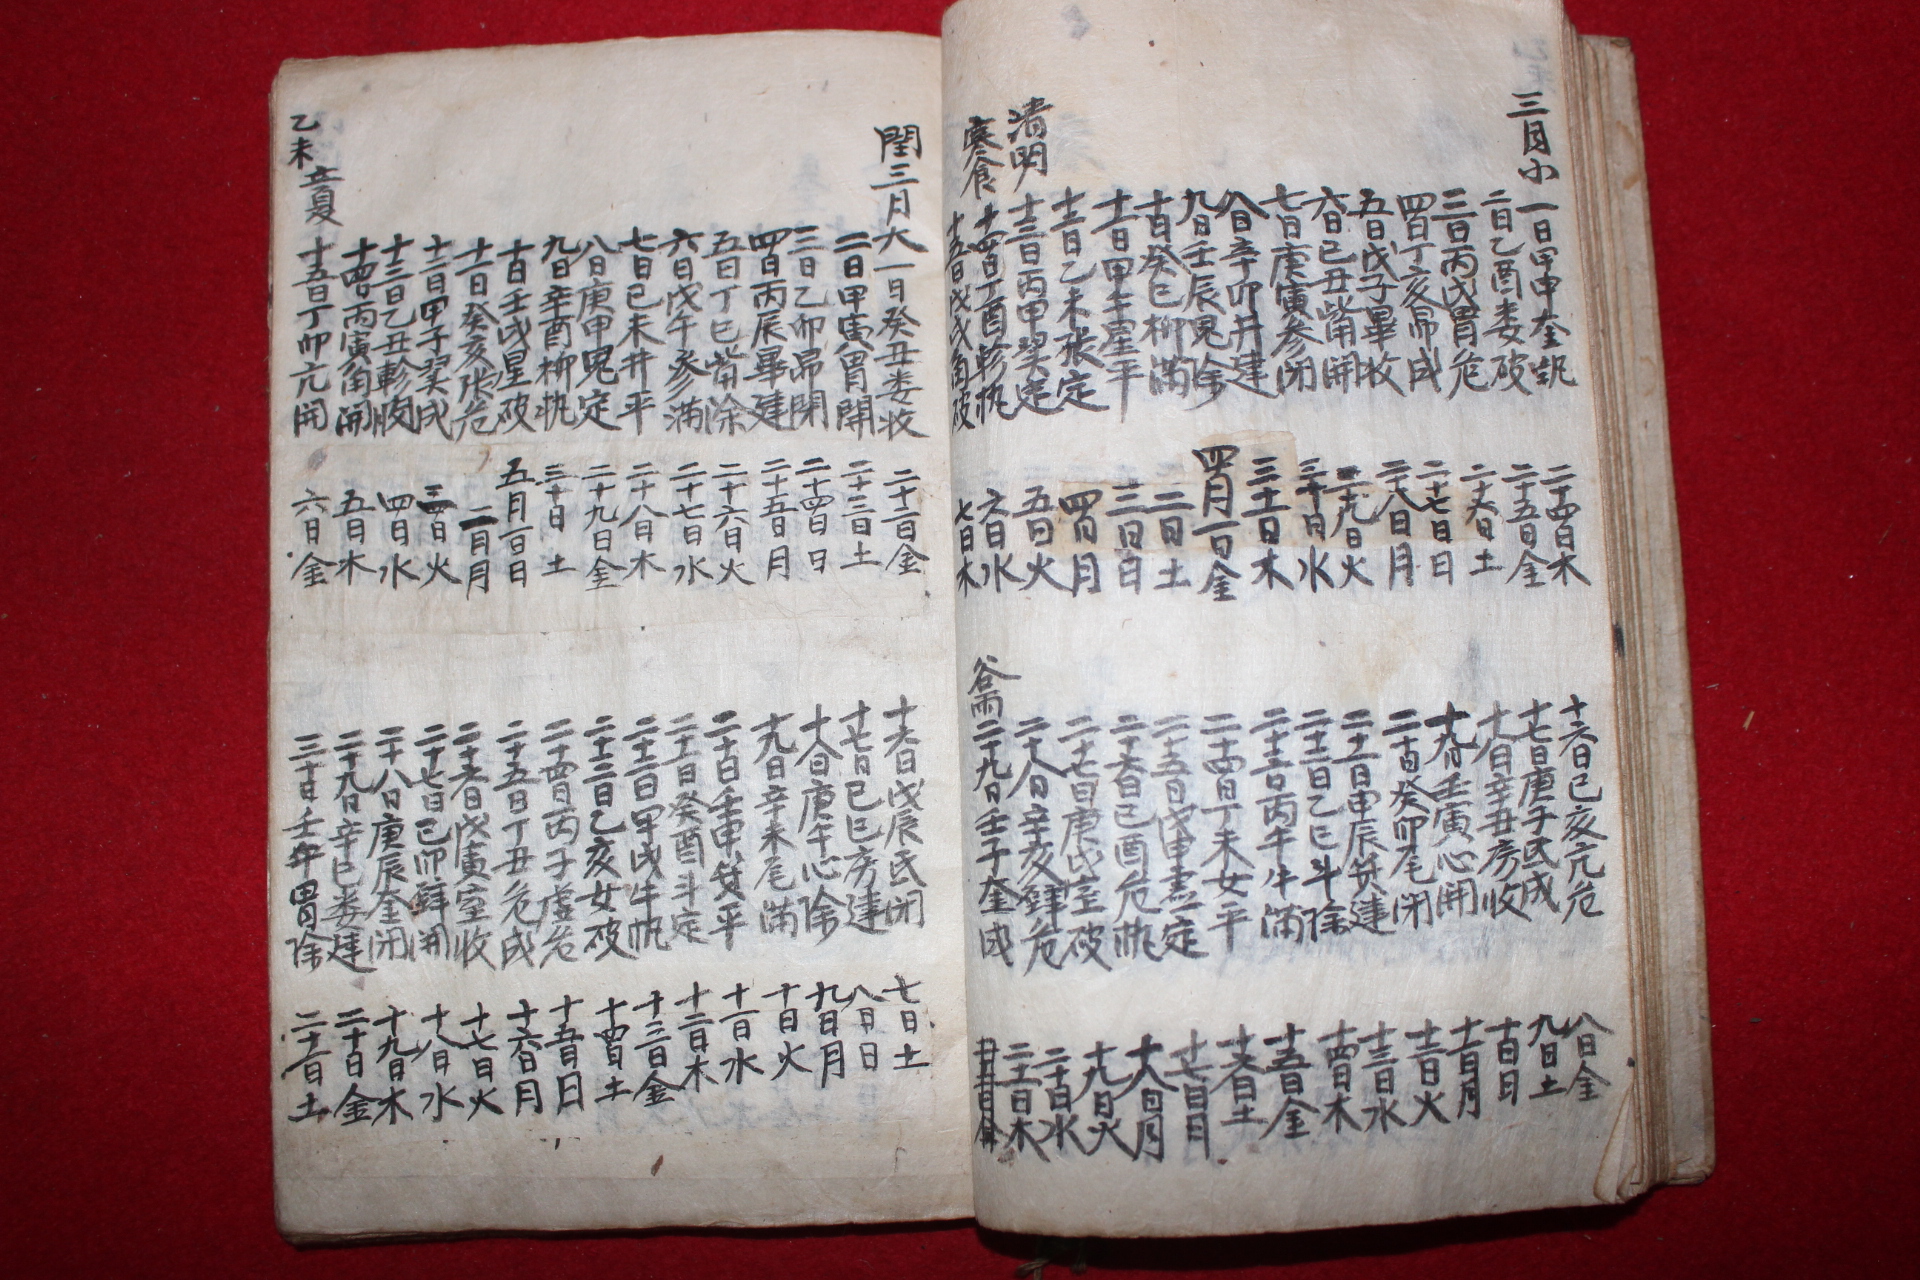 三月小
一日甲申奎執 二十四日木
二日乙酉婁破 二十五日金
三日丙戌胃危 二十六日土
四日丁亥昴成 二十七日日
五日戊子畢收 二十八日月
六日己丑觜開 二十九日火
七日庚寅參閉 三十日水
八日辛卯井建 三十一日木
九日壬辰鬼除 四月一日金
十日癸巳柳滿 二日土
十一日甲午星平 三日日
十二日乙未張定 四日月
清明 十三日丙申翼定 五日火
寒食 十四日丁酉軫執 六日水
十五日戊戌角破 七日木
十六日己亥亢危 八日金
十七日庚子氐成 九日土
十八日辛丑房收 十日日
十九日壬寅心開 十一日月
二十日癸卯尾閉 十二日火
二十一日甲辰箕建 十三日水
二十二日乙巳斗除 十四日木
二十三日丙午牛滿 十五日金
二十四日丁未女平 十六日土
二十五日戊申虛定 十七日日
二十六日己酉危執 十八日月
二十七日庚戌室破 十九日火
二十八日辛亥壁危 二十日水
谷雨 二十九日壬子奎成 二十一日木
閏三月大
一日癸丑婁收 二十二日金
二日甲寅胃開 二十三日土
三日乙卯昴閉 二十四日日
四日丙辰畢建 二十五日月
五日丁巳觜除 二十六日火
六日戊午參滿 二十七日水
七日己未井平 二十八日木
八日庚申鬼定 二十九日金
九日辛酉柳執 三十日土
十日壬戌星破 五月一日日
十一日癸亥張危 二日月
十二日甲子翼成 三日火
十三日乙丑軫收 四日水
十四日丙寅角開 五日木
乙未 立夏 十五日丁卯亢開 六日金
十六日戊辰氐閉 七日土
十七日己巳房建 八日日
十八日庚午心除 九日月
十九日辛未尾滿 十日火
二十日壬申箕平 十一日水
二十一日癸酉斗定 十二日木
二十二日甲戌牛執 十三日金
二十三日乙亥女破 十四日土
二十四日丙子虛危 十五日日
二十五日丁丑危成 十六日月
二十六日戊寅室收 十七日火
二十七日己卯壁開 十八日水
二十八日庚辰奎閉 十九日木
二十九日辛巳婁建 二十日金
三十日壬午胃除 二十一日土